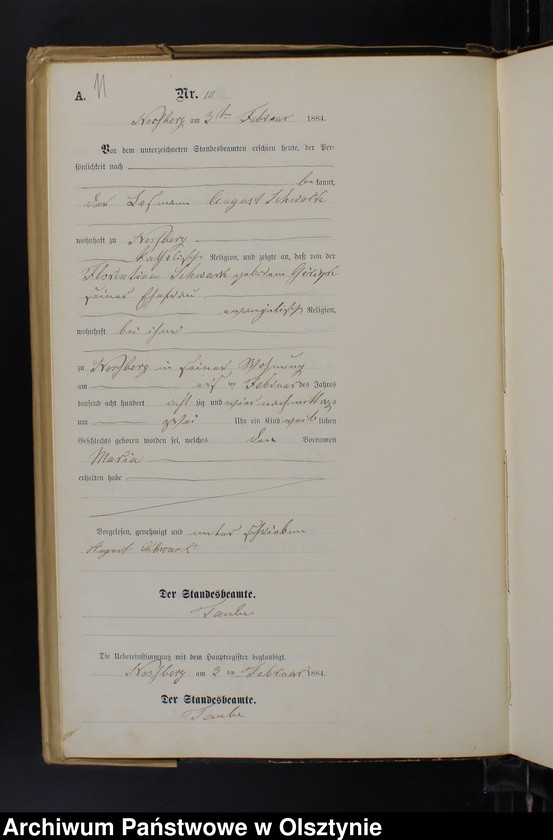 11
A. Nr. 10
am 3ten Februar 1884.
Vor dem unterzeichneten Standesbeamten erschien heute, der Per-
sönlichkeit nach
be kannt,
der Losmann August Schwark
wohnhaft zu
katholischer Religion, und zeigte an, daß von der
Florentina Schwark geborenen
seiner Ehefrau
evangelisch Religion,
wohnhaft bei ihm
zu in seiner Wohnung
am ten Februar des Jahres
tausend acht hundert acht zig und vier nachmittags
um Uhr ein Kind weib lichen
Geschlechts geboren worden sei, welches den Vornamen
Maria
erhalten habe
Vorgelesen, genehmigt und unterschrieben
August Schwark
Der Standesbeamte.
Taube
Die Uebereinstimmung mit dem Hauptregister beglaubigt.
am 3 ten Februar 1884.
Der Standesbeamte.
Taube
Archiwum Państwowe w Olsztynie